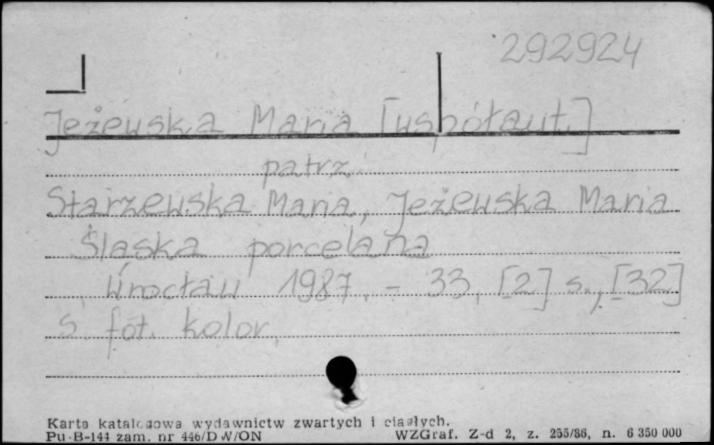 292924
Jeżewska Maria [współaut.]
patrz
Starzewska Maria, Jeżewska Maria
Śląska porcelana
Wrocław 1987. - 33, [2] s., [32]
s. fot. kolor.
Karta katalogowa wydawnictw zwartych i ciągłych.
Pu-B-144 zam. nr 446/DW/ON WZGraf. Z-d 2, z. 255/86, n. 6 350 000